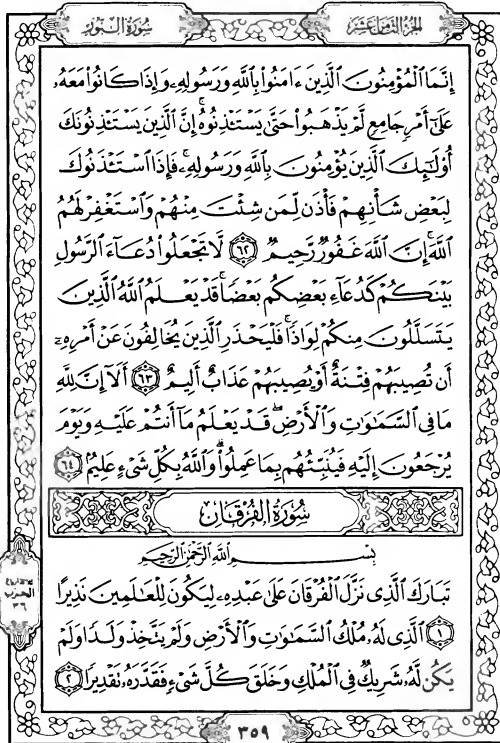 الجزء الثامن عشر
سورة النور
إِنَّمَا ٱلْمُؤْمِنُونَ ٱلَّذِينَ ءَامَنُوا۟ بِٱللَّهِ وَرَسُولِهِۦ وَإِذَا كَانُوا۟ مَعَهُۥ
عَلَىٰٓ أَمْرٍ جَامِعٍ لَّمْ يَذْهَبُوا۟ حَتَّىٰ يَسْتَـْٔذِنُوهُ ۚ إِنَّ ٱلَّذِينَ يَسْتَـْٔذِنُونَكَ
أُو۟لَـٰٓئِكَ ٱلَّذِينَ يُؤْمِنُونَ بِٱللَّهِ وَرَسُولِهِۦ ۚ فَإِذَا ٱسْتَـْٔذَنُوكَ
لِبَعْضِ شَأْنِهِمْ فَأْذَن لِّمَن شِئْتَ مِنْهُمْ وَٱسْتَغْفِرْ لَهُمُ
ٱللَّهَ ۚ إِنَّ ٱللَّهَ غَفُورٌ رَّحِيمٌ ٦٢ لَّا تَجْعَلُوا۟ دُعَآءَ ٱلرَّسُولِ
بَيْنَكُمْ كَدُعَآءِ بَعْضِكُم بَعْضًا ۚ قَدْ يَعْلَمُ ٱللَّهُ ٱلَّذِينَ
يَتَسَلَّلُونَ مِنكُمْ لِوَاذًا ۚ فَلْيَحْذَرِ ٱلَّذِينَ يُخَالِفُونَ عَنْ أَمْرِهِۦٓ
أَن تُصِيبَهُمْ فِتْنَةٌ أَوْ يُصِيبَهُمْ عَذَابٌ أَلِيمٌ ٦٣ أَلَآ إِنَّ لِلَّهِ
مَا فِى ٱلسَّمَـٰوَٰتِ وَٱلْأَرْضِ ۖ قَدْ يَعْلَمُ مَآ أَنتُمْ عَلَيْهِ وَيَوْمَ
يُرْجَعُونَ إِلَيْهِ فَيُنَبِّئُهُم بِمَا عَمِلُوا۟ ۗ وَٱللَّهُ بِكُلِّ شَىْءٍ عَلِيمٌۢ ٦٤
سورة الفرقان
بِسْمِ ٱللَّهِ ٱلرَّحْمَـٰنِ ٱلرَّحِيمِ
تَبَارَكَ ٱلَّذِى نَزَّلَ ٱلْفُرْقَانَ عَلَىٰ عَبْدِهِۦ لِيَكُونَ لِلْعَـٰلَمِينَ نَذِيرًا
١ ٱلَّذِى لَهُۥ مُلْكُ ٱلسَّمَـٰوَٰتِ وَٱلْأَرْضِ وَلَمْ يَتَّخِذْ وَلَدًا وَلَمْ
يَكُن لَّهُۥ شَرِيكٌ فِى ٱلْمُلْكِ وَخَلَقَ كُلَّ شَىْءٍ فَقَدَّرَهُۥ تَقْدِيرًا ٢
الحزب
٣٦
٣٥٩